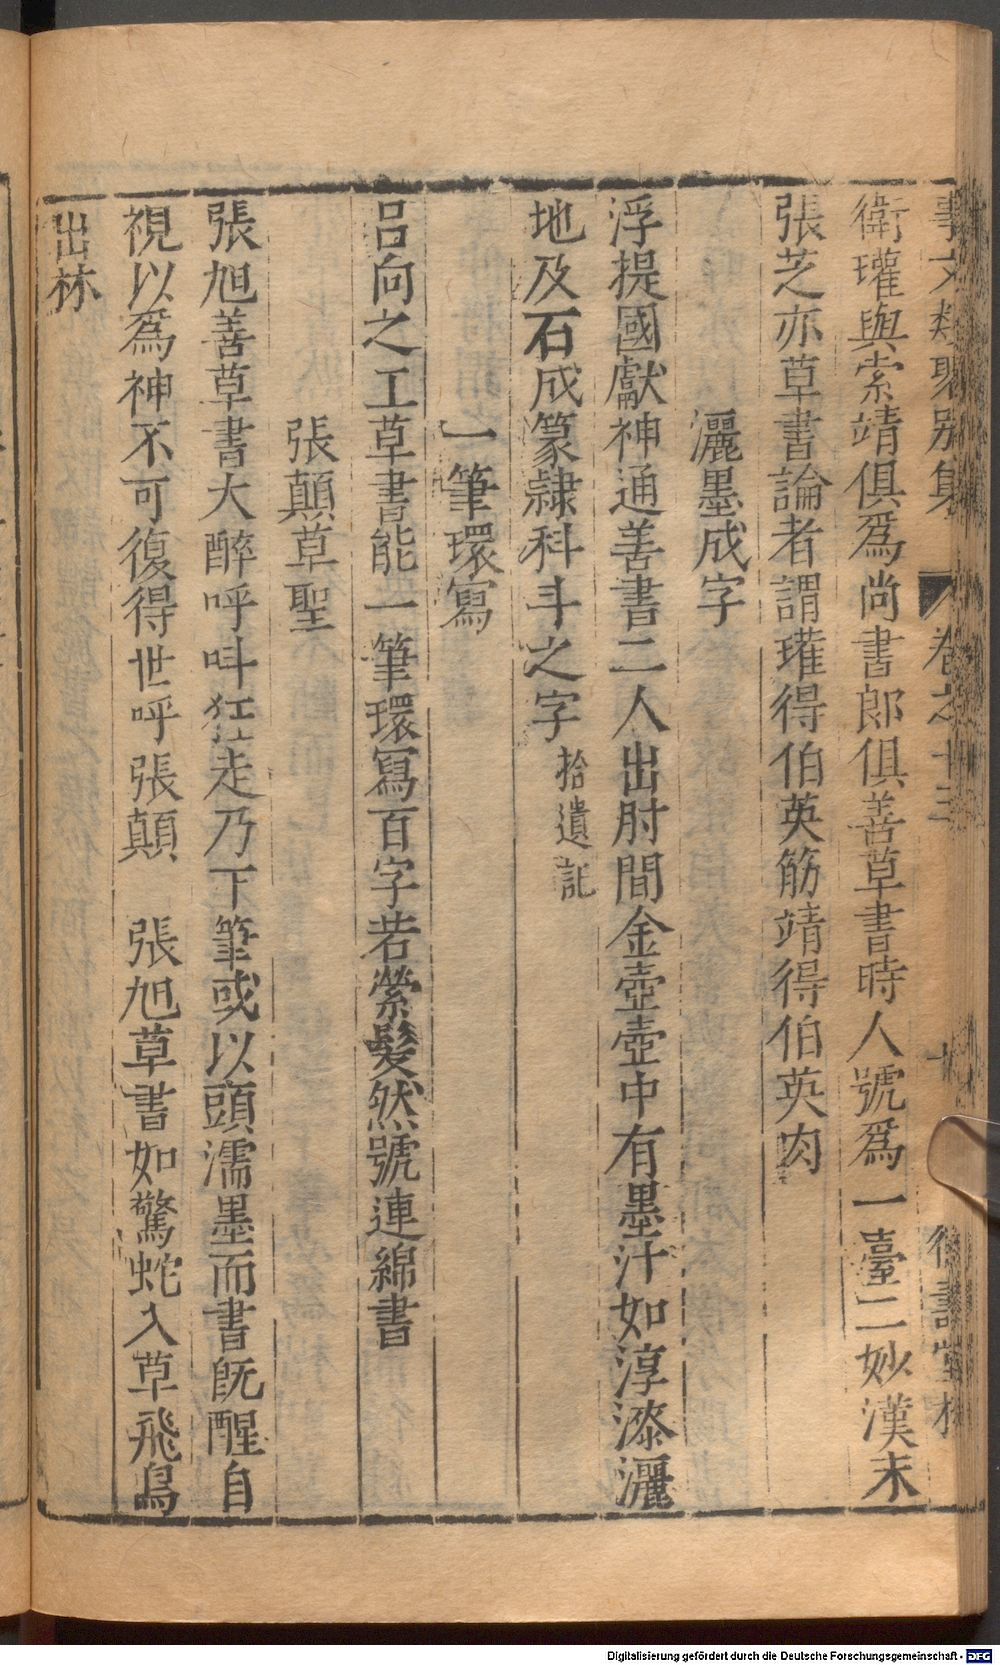 事文類聚別集 卷之十三 德壽堂梓
衛瓘與索靖俱爲尚書郎俱善草書時人號爲一臺二妙漢末
張芝亦草書論者謂瓘得伯英筋靖得伯英肉
灑墨成字
浮提國獻神通善書二人出肘間金壺壺中有墨汁如淳漆灑
地及石成篆隷科斗之字 拾遺記
一筆環寫
呂向之工草書能一筆環寫百字若縈髮然號連綿書
張顛草聖
張旭善草書大醉呼呌狂走乃下筆或以頭濡墨而書旣醒自
視以爲神不可復得世呼張顛 張旭草書如驚蛇入草飛鳥
出林
Digitalisierung gefördert durch die Deutsche Forschungsgemeinschaft - DFG